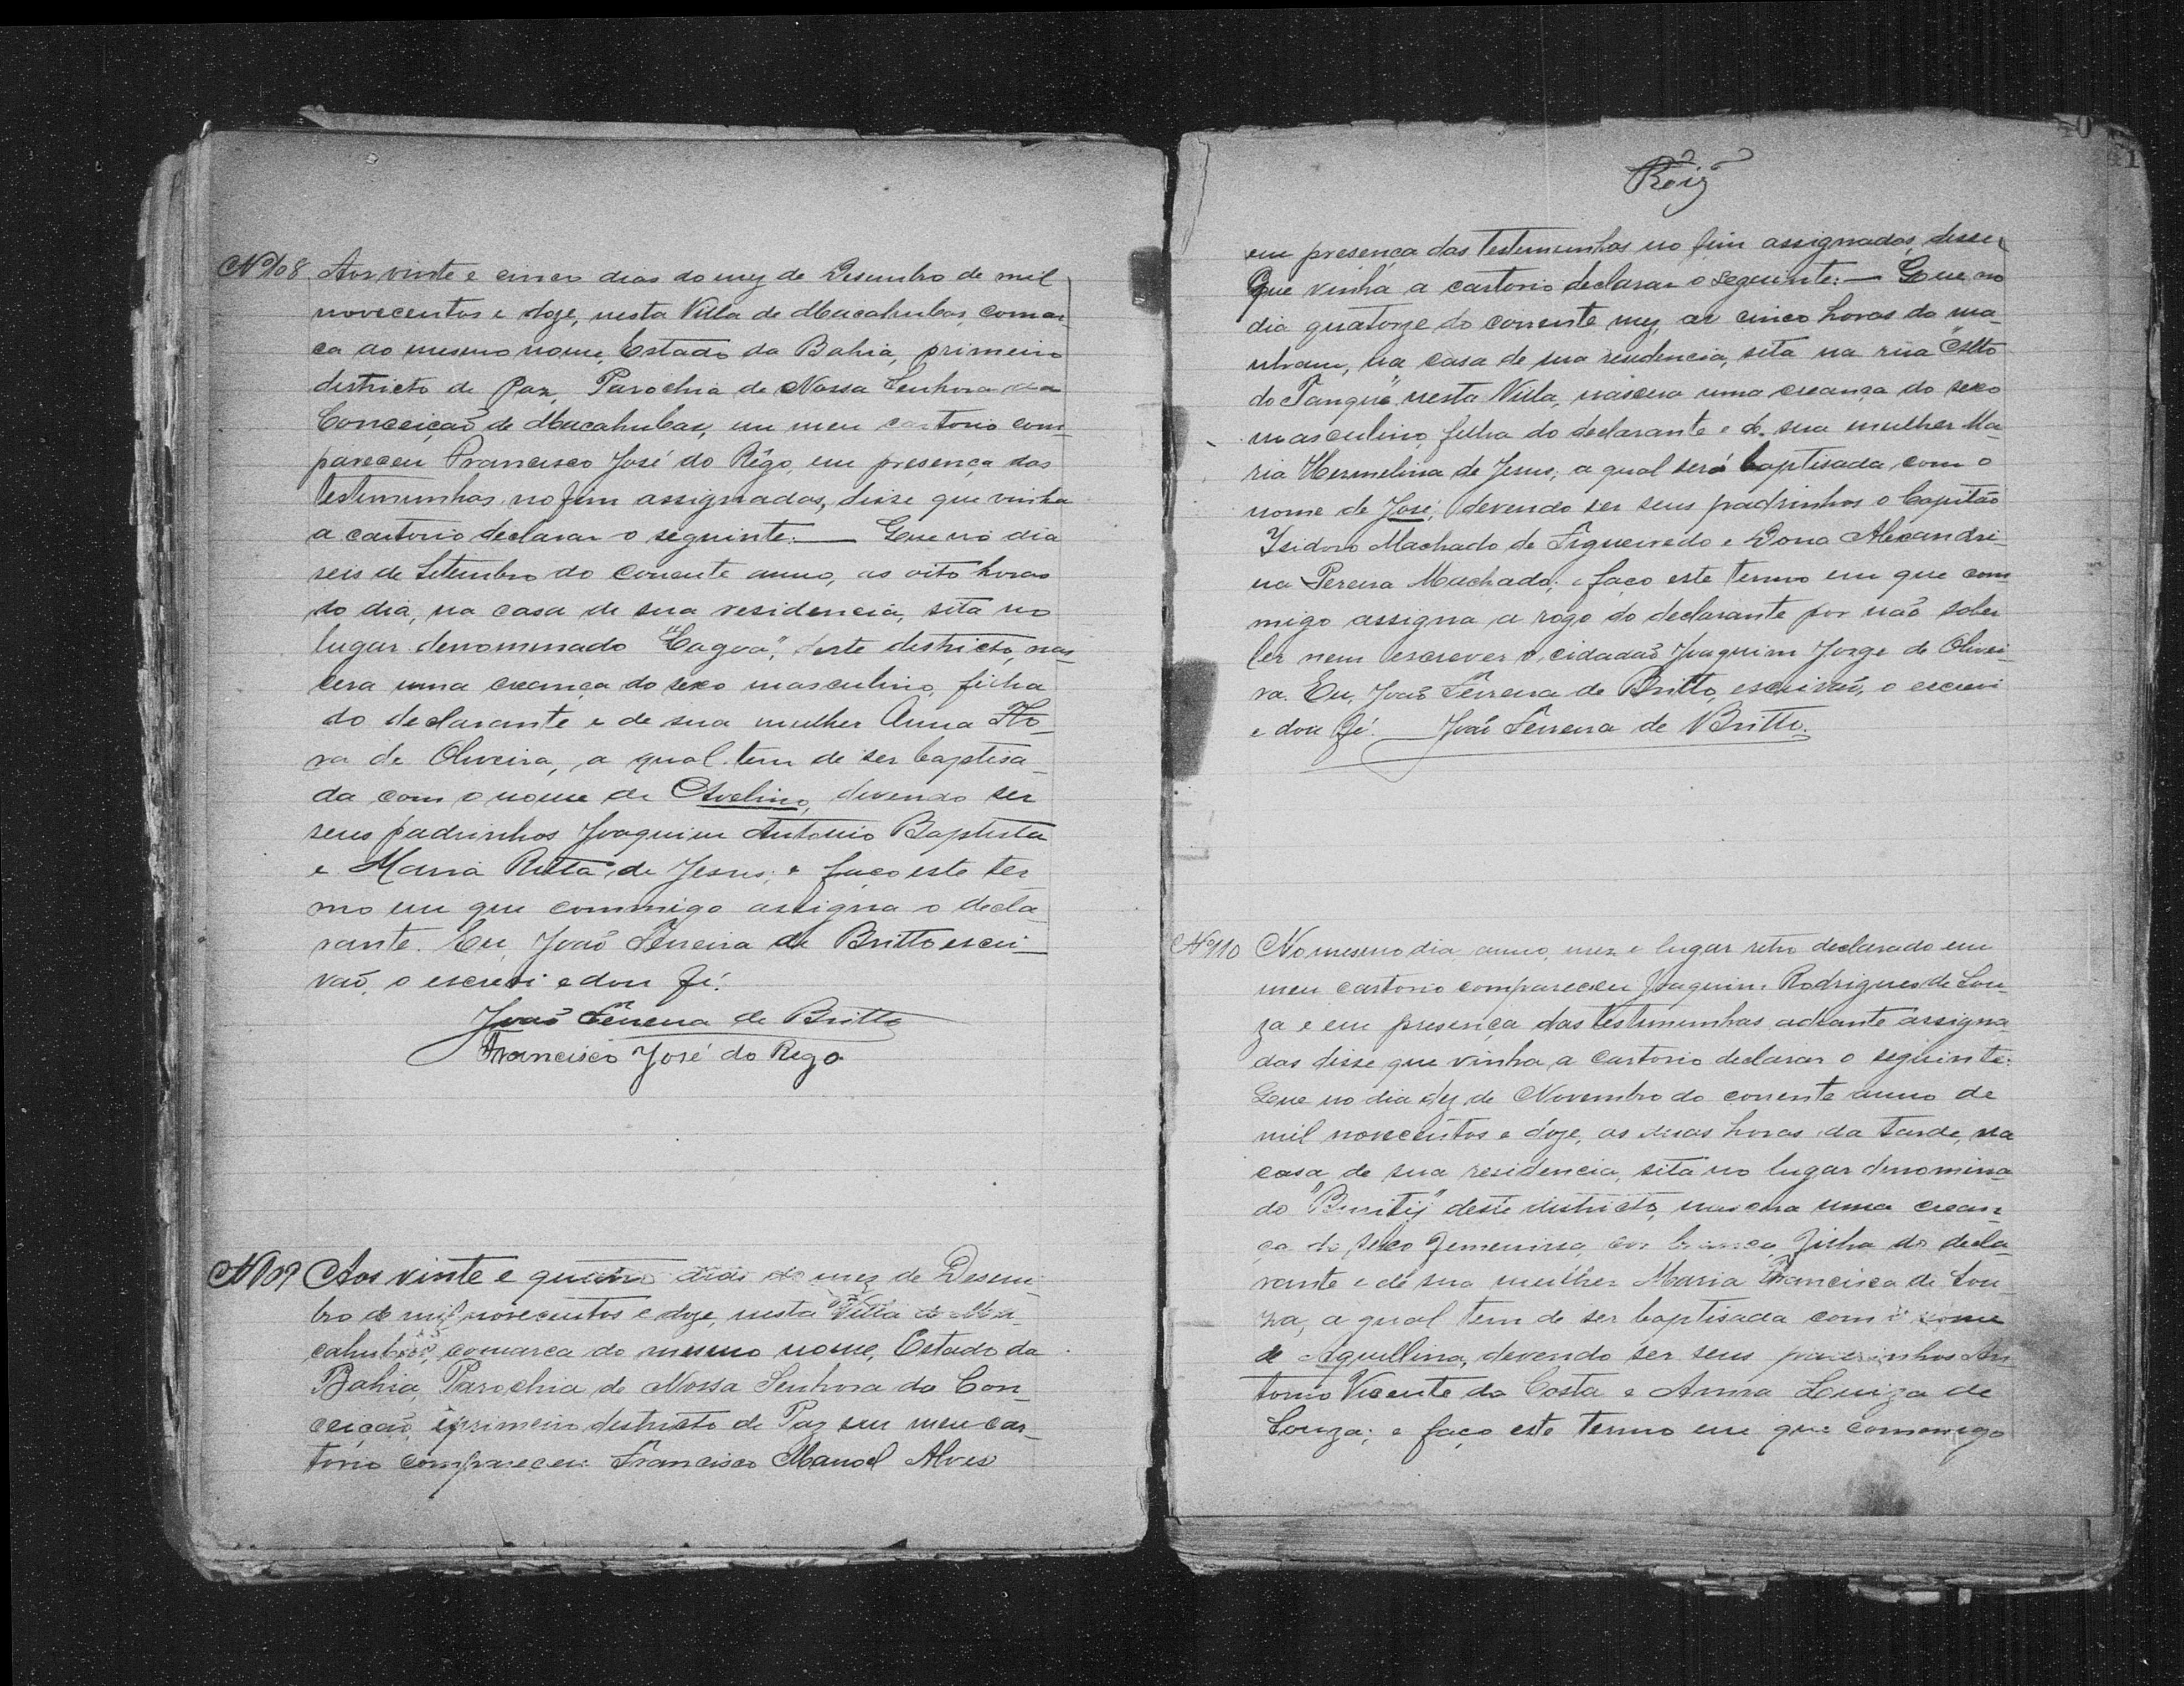 Nº 108 Aos vinte e cinco dias do mez de Desembro de mil
novecentos e doze, nesta Villa de Macahubas, comar-
ca do mesmo nome, Estado da Bahia, primeiro
districto de Paz, Parochia de Nossa Senhora da
Conceição de Macahubas, em meu cartorio com-
pareceu Francisco José do Rêgo, em presença das
testemunhas no fim assignadas, disse que vinha
a cartorio declarar o seguinte:— Que no dia
seis de Setembro do corrente anno, as oito horas
do dia, na casa de sua residencia, sita no
lugar denominado "Lagoa", deste districto, nas-
cera uma creança do sexo masculino, filha
do declarante e de sua mulher Anna
de Oliveira, a qual tem de ser baptisa-
da com o nome de Avelino, devendo ser
seus padrinhos Joaquim Antonio Baptista
e Maria Ritta de Jesus; e faço este ter-
mo em que commigo assigna o decla-
rante. Eu, João Ferreira de Britto escri-
vaõ, o escrevi e dou fé.
João Ferreira de Britto
Francisco José do Rego
Nº 109 Aos vinte e quatro dias do mez de Desem-
bro de mil novecentos e doze, nesta Villa de Ma-
cahubas, comarca do mesmo nome, Estado da
Bahia, Parochia de Nossa Senhora da Con-
ceição, primeiro districto de Paz em meu car-
torio compareceu Francisco Manoel Alves
40
41
Roiz
em presença das testemunhas no fim assignadas, disse
Que vinha a cartorio declarar o seguinte:— Que no
dia quatorze do corrente mez, as cinco horas da ma-
nham, na casa de sua residencia, sita na rua "Alto
do Tanque" nesta Villa, nascera uma creança do sexo
masculino, filha do declarante e de sua mulher Ma-
ria Hermelina de Jesus, a qual será baptisada com o
nome de José, devendo ser seus padrinhos o Capitão
Isidoro Machado de Figueiredo e Dona Alexandri-
na Pereira Machado; e faço este termo em que com-
migo assigna a rogo do declarante por não saber
ler nem escrever o cidadaõ Joaquim Jorge de Olivei-
ra. Eu, João Ferreira de Britto, escrivaõ, o escrevi
e dou fé. João Ferreira de Britto.
Nº 110 No mesmo dia, anno, mez e lugar retro declarado em
meu cartorio compareceu Joaquim Rodrigues de Sou-
za e em presença das testemunhas adiante assigna-
das disse que vinha a cartorio declarar o seguinte:
Que no dia dez de Novembro do corrente anno de
mil novecentos e doze, as duas horas da tarde, na
casa de sua residencia, sita no lugar denomina-
do "Burity" deste districto, nascera uma crean-
ça do sexo femenino, cor branca, filha do decla-
rante e de sua mulher Maria Francisca de Sou-
za, a qual tem de ser baptisada com o nome
de Aquillina, devendo ser seus padrinhos An-
tonio Vicente da Costa e Anna Luiza de
Souza; e faço este termo em que commigo